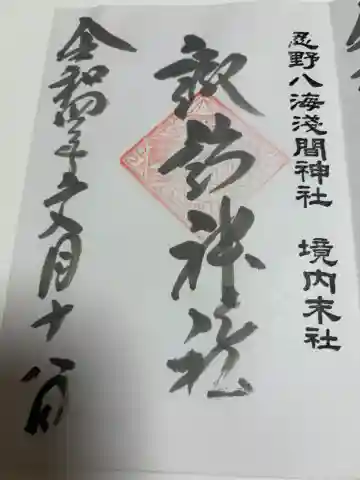 忍野八海淺間神社 境内末社
諏訪神社
令和四年五月十八日